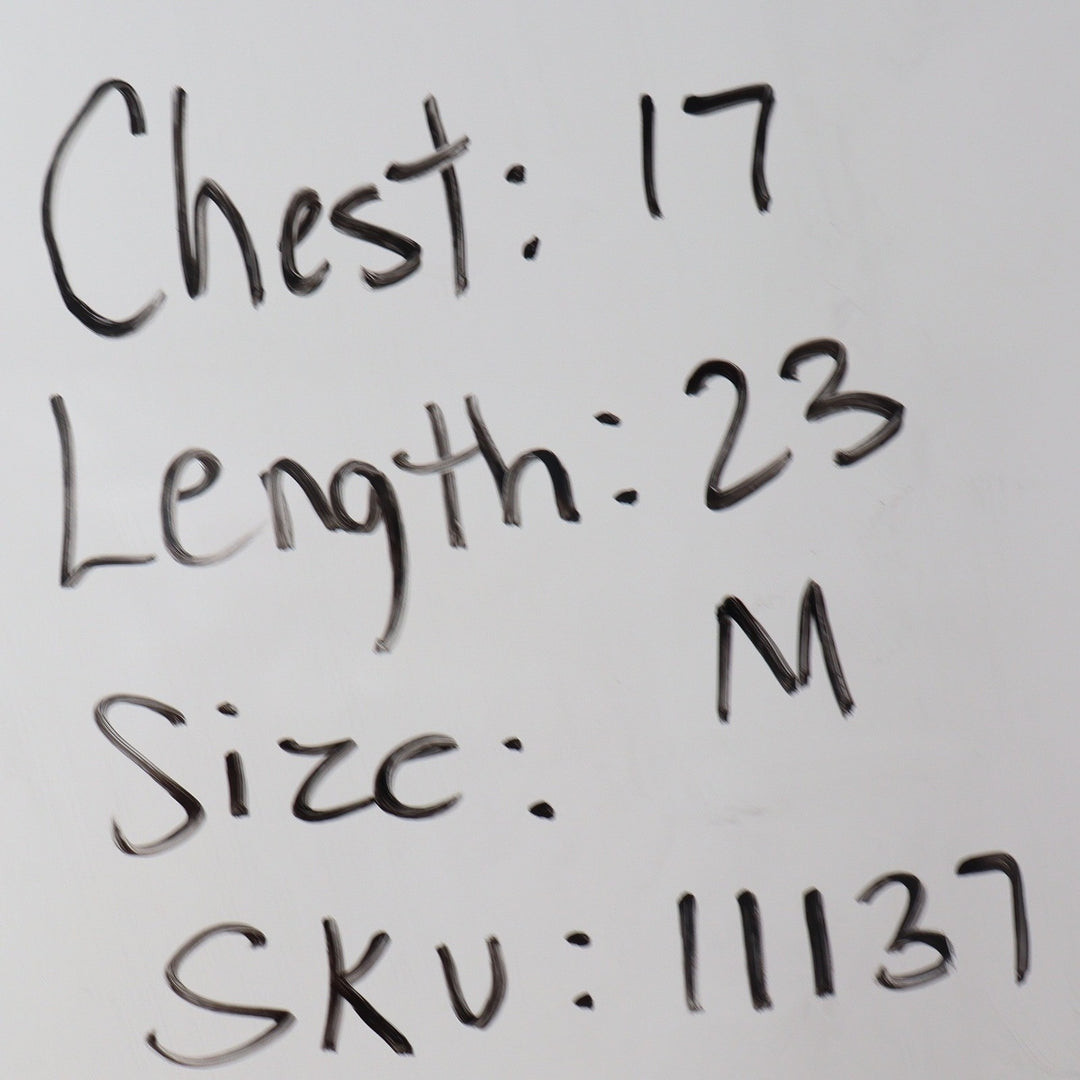 Chest: 17
Length: 23
Size: M
SKU: 11137